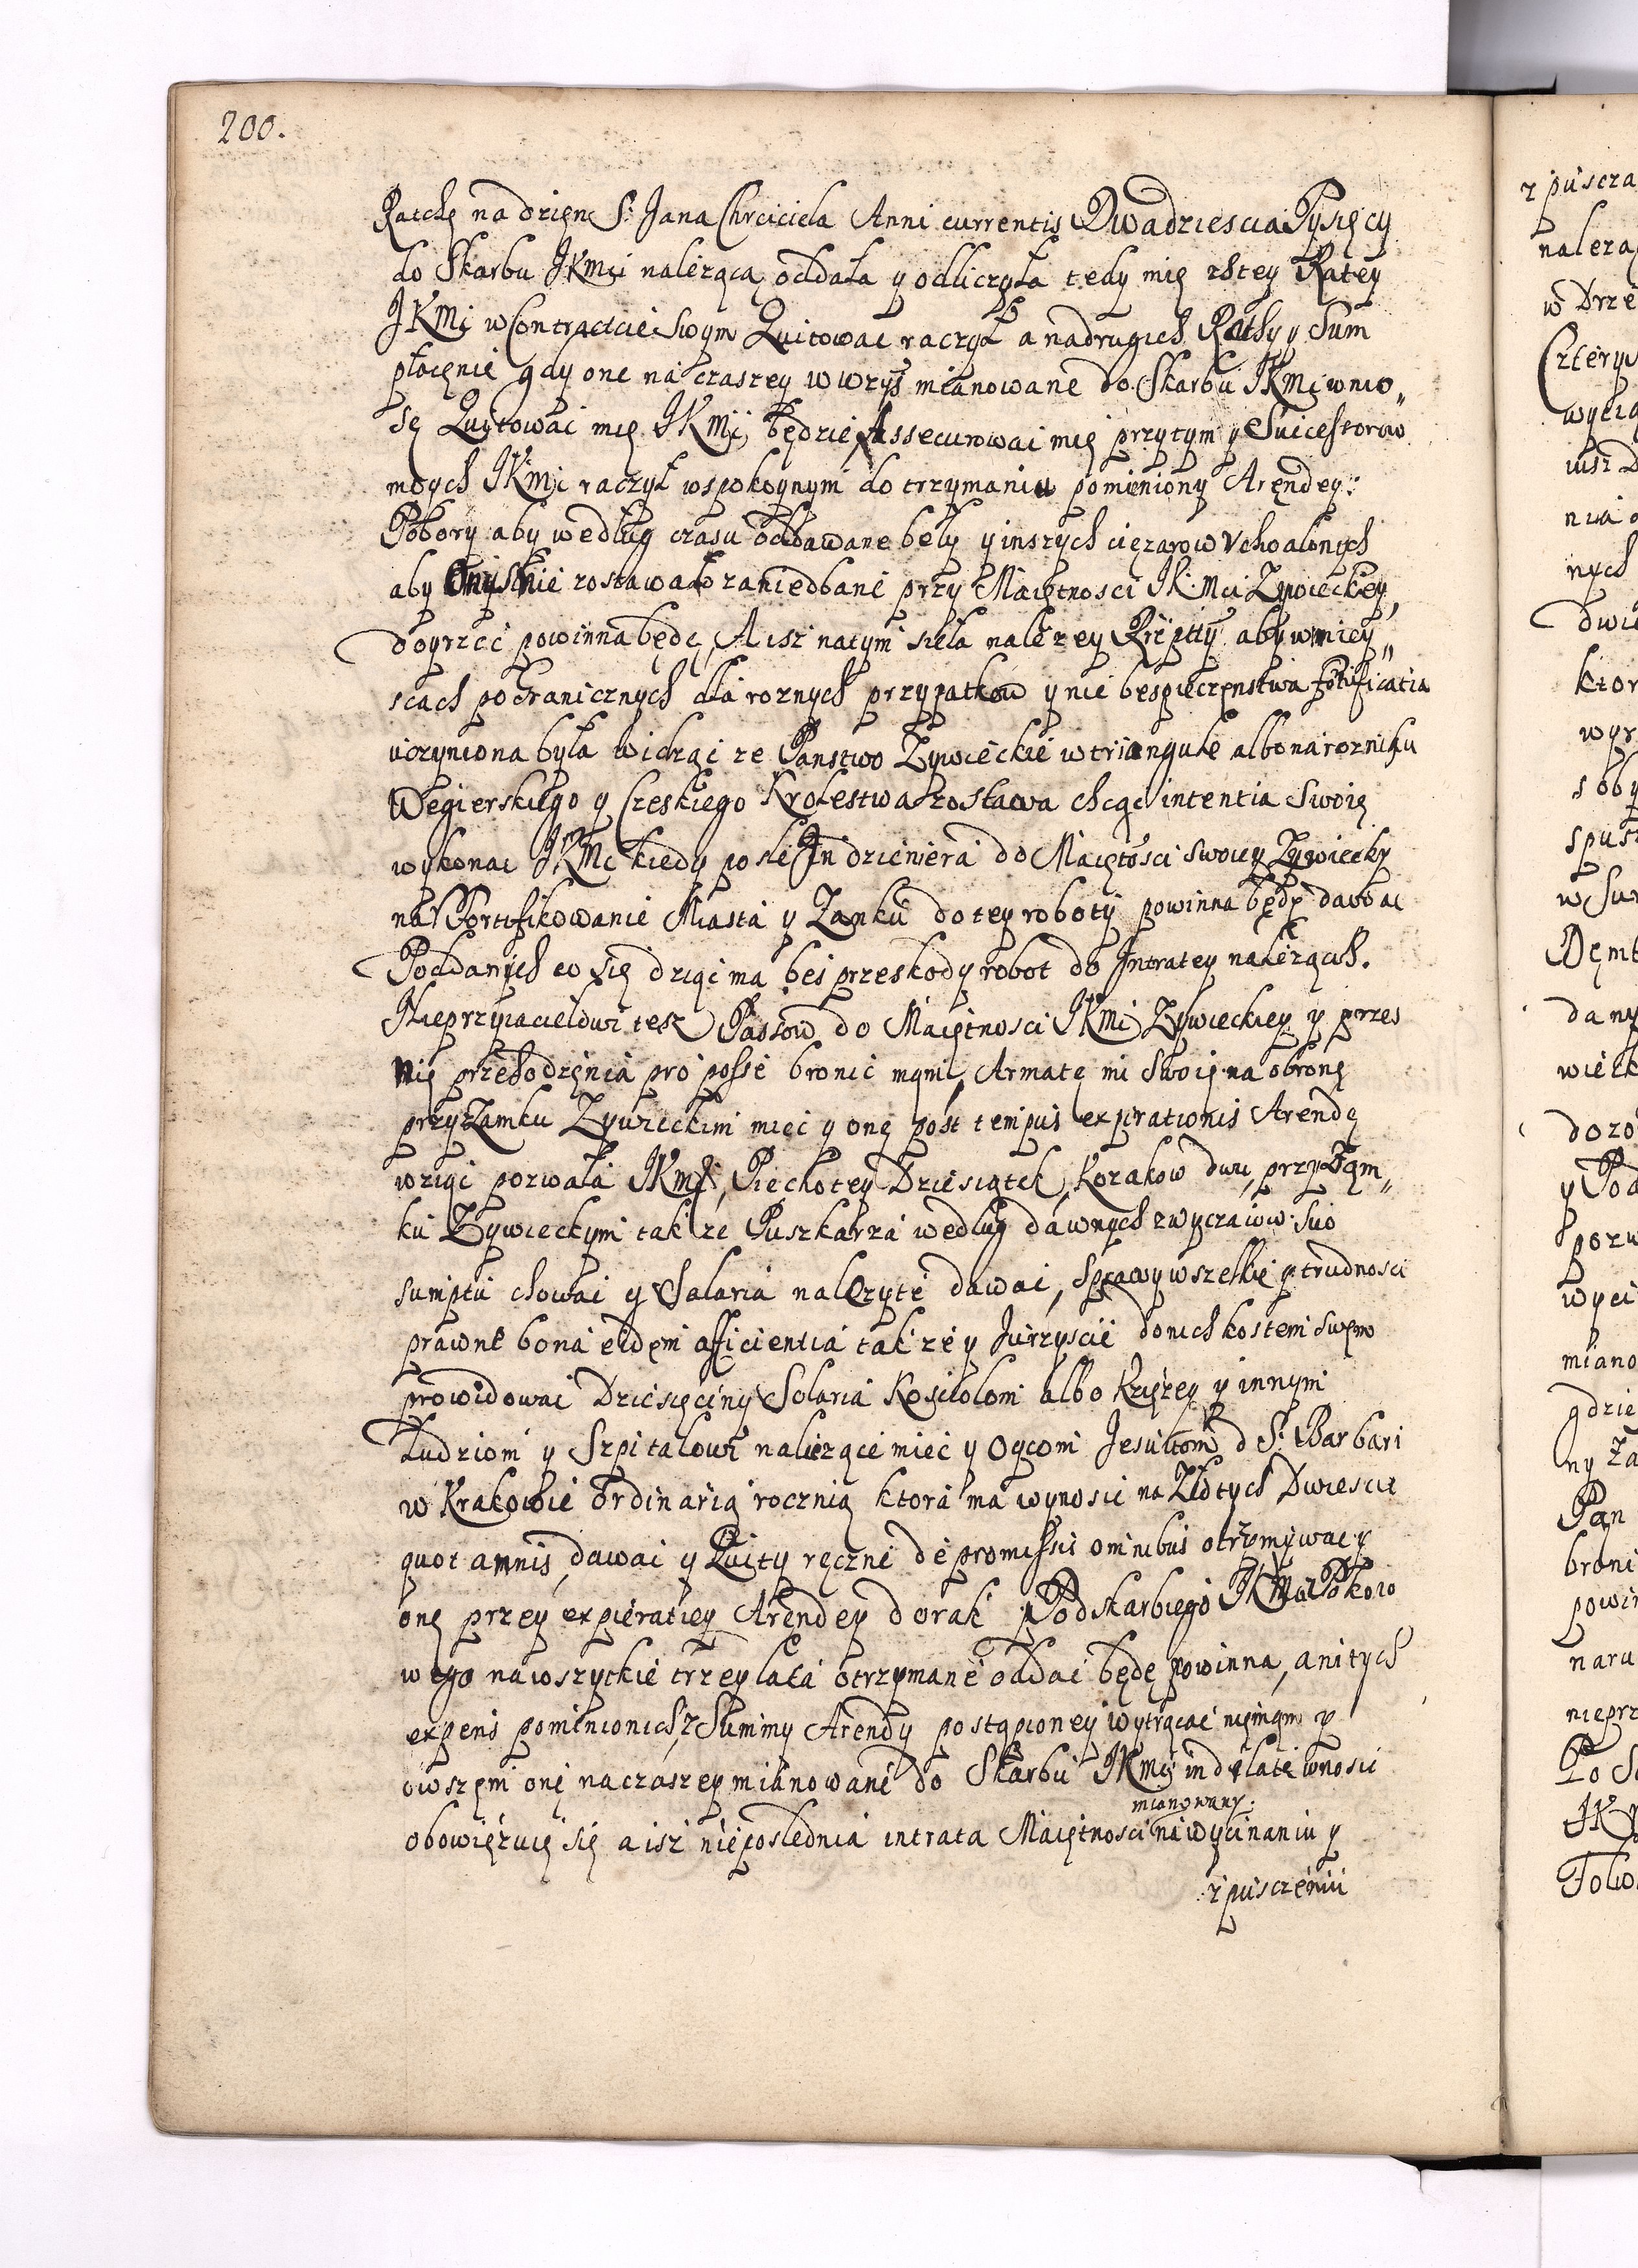 200.
Ratchę na dzięn S: Jana Chrciciela Anni currentis Dwadziescia Tysięcy
do Skarbu JKmci nalężąca oddała y odliczyła tedy mię zstey Ratey
JKMci w Contractcie swym Quitowac raczył a nadrugich Rathy y Sum
płacenie gdy one na czaszey wwzysz mianowane do Skarbu JKmci wnio„
sę Quitowac mię JKmci będzie, Assecurowac mię przytym y Successorow
moych JKmci raczył wspokoynym do trzymaniu pomieniony Arendey:
Pobory aby według czasu oddawane beły y inszych ciężarow Vchoalonych
aby nie zostawało zaniedbane przy Maiętnosci JK: Mci Zywieckey,
doyrzec powinna będę, A isz natym siela nalezey Rzeptty aby wmiey„
scach pogranicznych dla roznych przypatkow y nie bespieczęnstwa fortificatia
uczyniona była Widząc ze Panstwo Zywieckie w triangule albo narozniku
Węgierskiego y Czeskiego Krolestwa zostawa chcąc intentia Swoię
wykonac JKMc kiedy posle Jndzieniera do Maiętosci swoiey Zywiecky
na Vfortifikowanie Miasta y Zanku do tey roboty powinna będę dawac
Poddanych co się dziąc ma bes przeskody robot do Jntratey nalezącch.
Nieprzyiacielowi tesz Passow do Maiętnosci JKmci Zywieckiey y przes
nię przehodzęnia pro posse bronic mąm, Armatę mi Swoię na obronę
przy Zamku Zywieckim miec y onę post tempus expirationis Arendę
wziąc pozwala JKmci, Piechotey Dziesiątek, Kozakow dwu, przy Ząm„
ku Zywieckym tak ze Puszkarza według dawnych zwyczaiow suo
sumptu chowac y Salaria nalezyte dawac, Sprawy wszelkie y trudnosci
prawne bona eidem afficientia tak ze y Jurzyscie donich kostem swym
prowidowac Dziesięciny Solaria Kosciolom albo Księzey y innym
Ludziom y Szpitalowi naliezące miec y Oycom Jesuitom d S: Barbari
w Krakowie ordinarią rocznią ktora ma wynosic na Złotych Dwiescie
quot annis, dawac y Quity ręczne de promissis omnibus otrzymywac y
onę przey expieratiey Arendey dorak Podskarbiego JKMci Pokoio
wego na wszytkie trzey lata otrzymane oddac będę powinna, ani tych
expens pomienionich z Summy Arendy postąpioney wytrącac niemąm y
owszęm one naczaszey mianowane do Skarbu JKmci indilate wnosic
obowięzuię się a isz nieposlednia intrata Maiętnosci mianowany na wycinaniu y
zpusczeniu